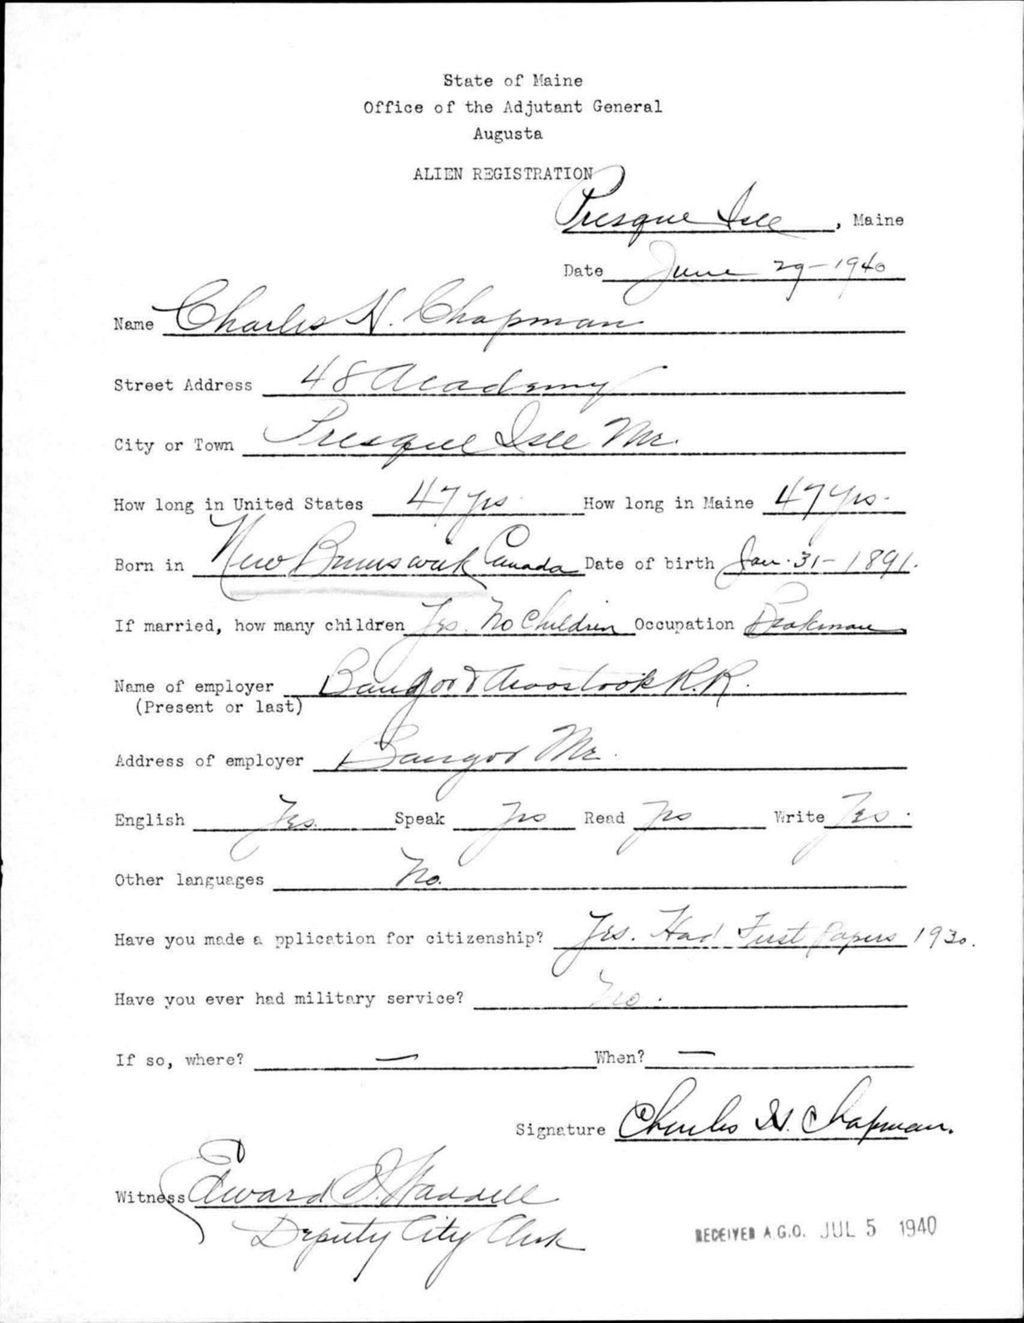 State of Maine
Office of the Adjutant General
Augusta
ALIEN REGISTRATION
Presque Isle, Maine
Date June 29-1940
Name Charles H. Chapman
Street Address 48 Academy
City or Town Presque Isle Me.
How long in United States 47 yrs. How long in Maine 47 yrs.
Born in New Brunswick Canada Date of birth Jan. 31-1891.
If married, how many children Yes. No Children Occupation Brakman
Name of employer Bangor & Aroostook R.R.
(Present or last)
Address of employer Bangor Me.
English Yes. Speak Yes Read Yes Write Yes.
Other languages No.
Have you made a pplication for citizenship? Yes. Had First Papers 1930.
Have you ever had military service? No.
If so, where? — When? —
Signature Charles H. Chapman.
Witness Edward Waddell
Deputy City Clerk
RECEIVED A.G.O. JUL 5 1940